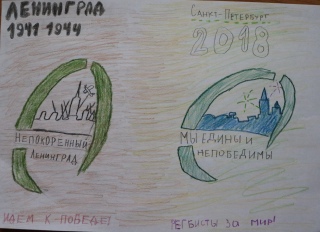 ЛЕНИНГРАД
1941-1944
НЕПОКОРЕННЫЙ
ЛЕНИНГРАД
ИДЕМ К ПОБЕДЕ!
САНКТ-ПЕТЕРБУРГ
2018
МЫ ЕДИНЫ И
НЕПОБЕДИМЫ
РЕГБИСТЫ ЗА МИР!